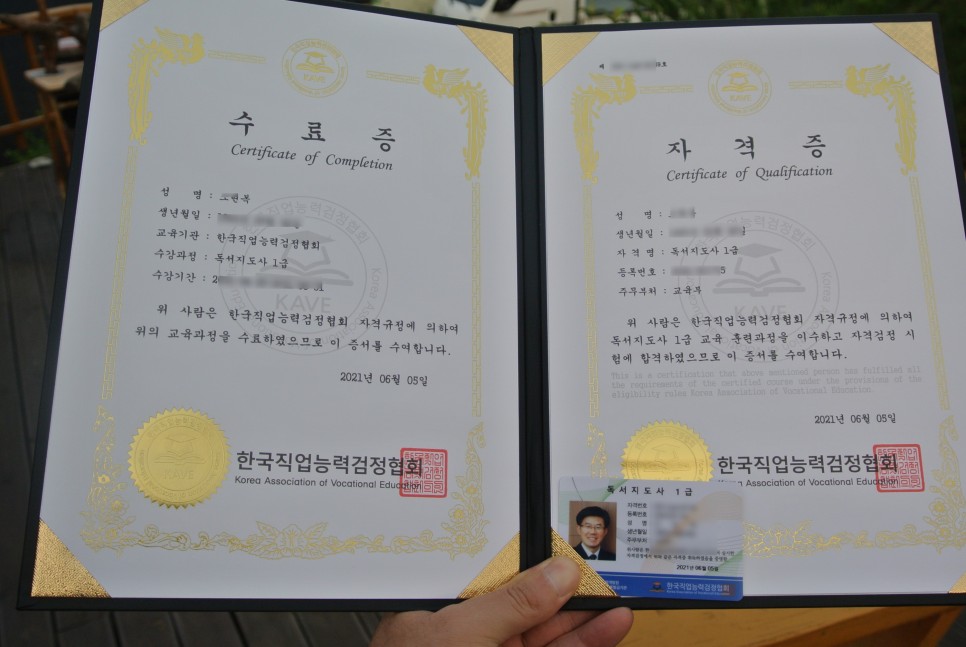 수 료 증
Certificate of Completion
성 명 :
생년월일 :
교육기관 : 한국직업능력검정협회
수강과정 : 독서지도사 1급
수강기간 :
위 사람은 한국직업능력검정협회 자격규정에 의하여
위의 교육과정을 수료하였으므로 이 증서를 수여합니다.
2021년 06월 05일
한국직업능력검정협회
Korea Association of Vocational Education
KAVE
제 호
자 격 증
Certificate of Qualification
성 명 :
생년월일 :
자 격 명 : 독서지도사 1급
등록번호 :
주무부처 : 교육부
위 사람은 한국직업능력검정협회 자격규정에 의하여
독서지도사 1급 교육 훈련과정을 이수하고 자격검정 시
험에 합격하였으므로 이 증서를 수여합니다.
This is a certification that above mentioned person has fulfilled all
the requirements of the certified course under the provisions of the
eligibility rules Korea Association of Vocational Education.
2021년 06월 05일
한국직업능력검정협회
Korea Association of Vocational Education
KAVE
독서지도사 1급
자격번호
등록번호
성 명
생년월일
주무부처
2021년 06월 05일
한국직업능력검정협회